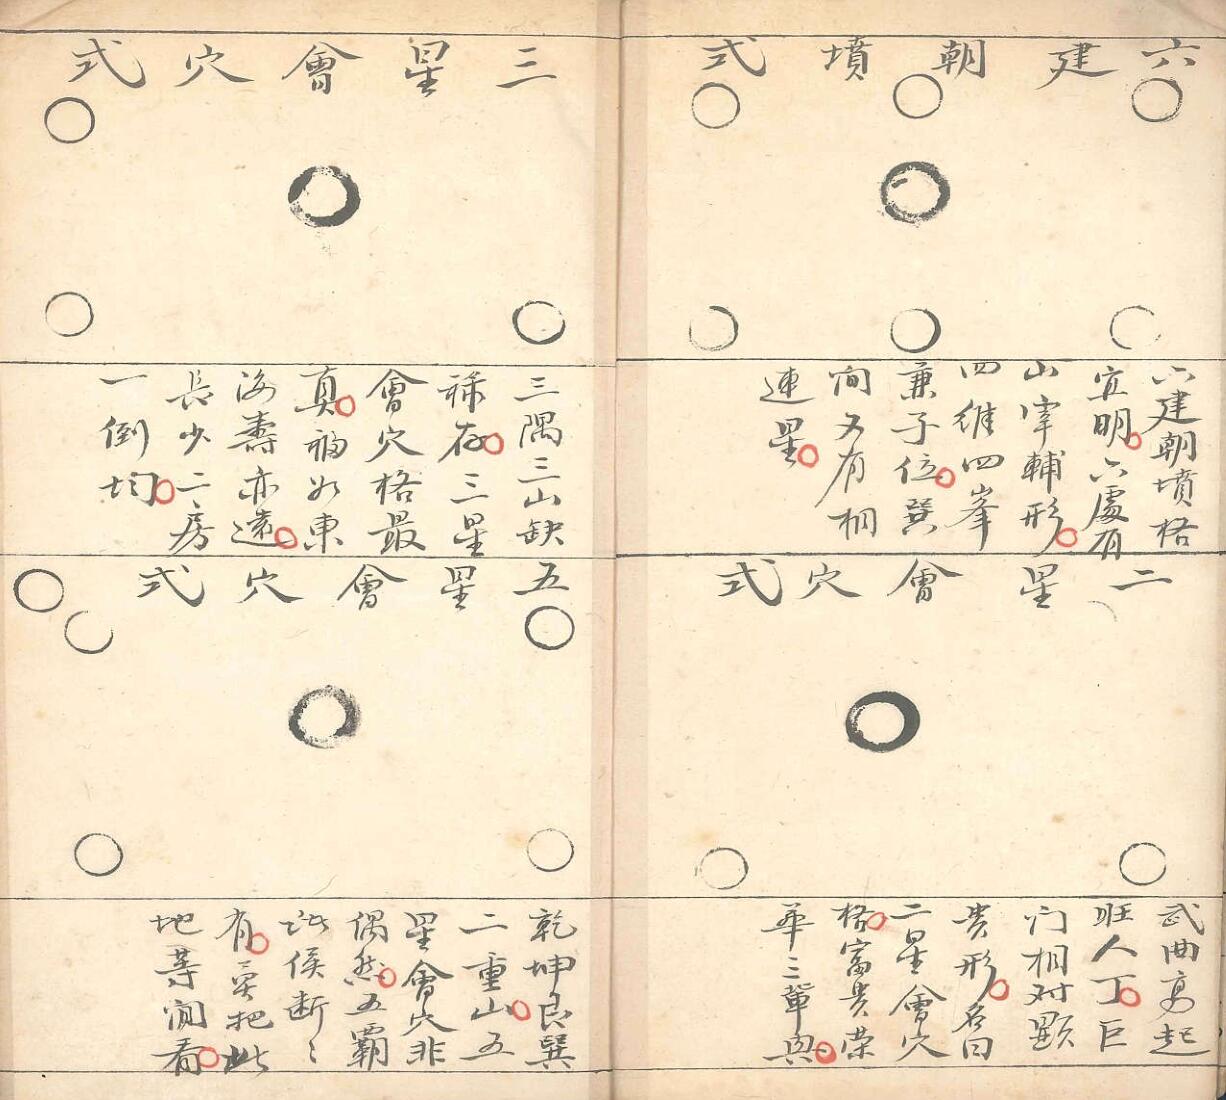 六建朝墳式
六建朝墳格
宜明六處有
山宰輔形
四維四峯
兼子位巽
向又有相
連星
二星會穴式
武曲高起
旺人丁巨
门相对顯
贵形名曰
二星會穴
格富贵荣
華三輩與
三星會穴式
三隅三山缺
稀存三星
會穴格最
真福如東
海壽亦遠
長少二房
一倒均
五星會穴式
乾坤艮巽
二重山五
星會穴非
偶然五霸
诸侯断々
有莫把此
地等闲看